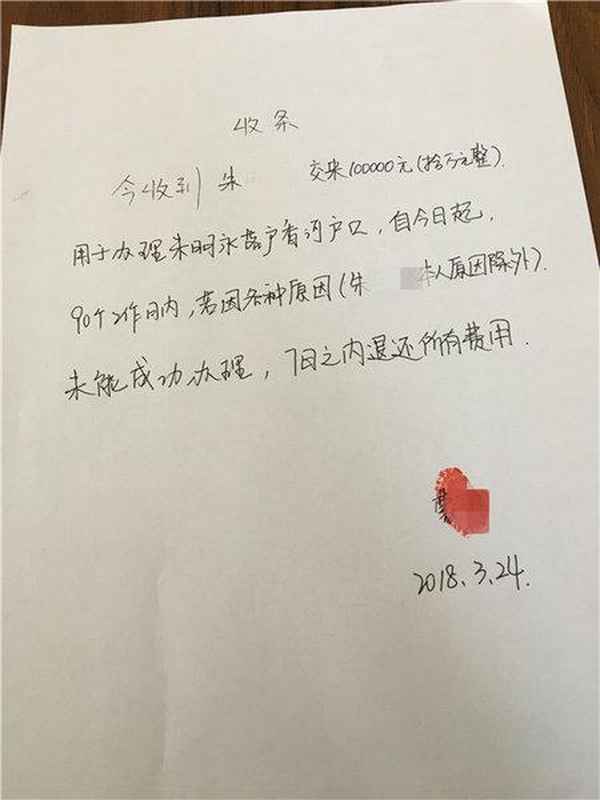 收条
今收到 朱 交来100000元(拾万元整).
用于办理朱 落户香河户口,自今日起,
90个工作日内,若因各种原因(朱 本人原因除外).
未能成功办理,7日之内退还所有费用.
2018.3.24.